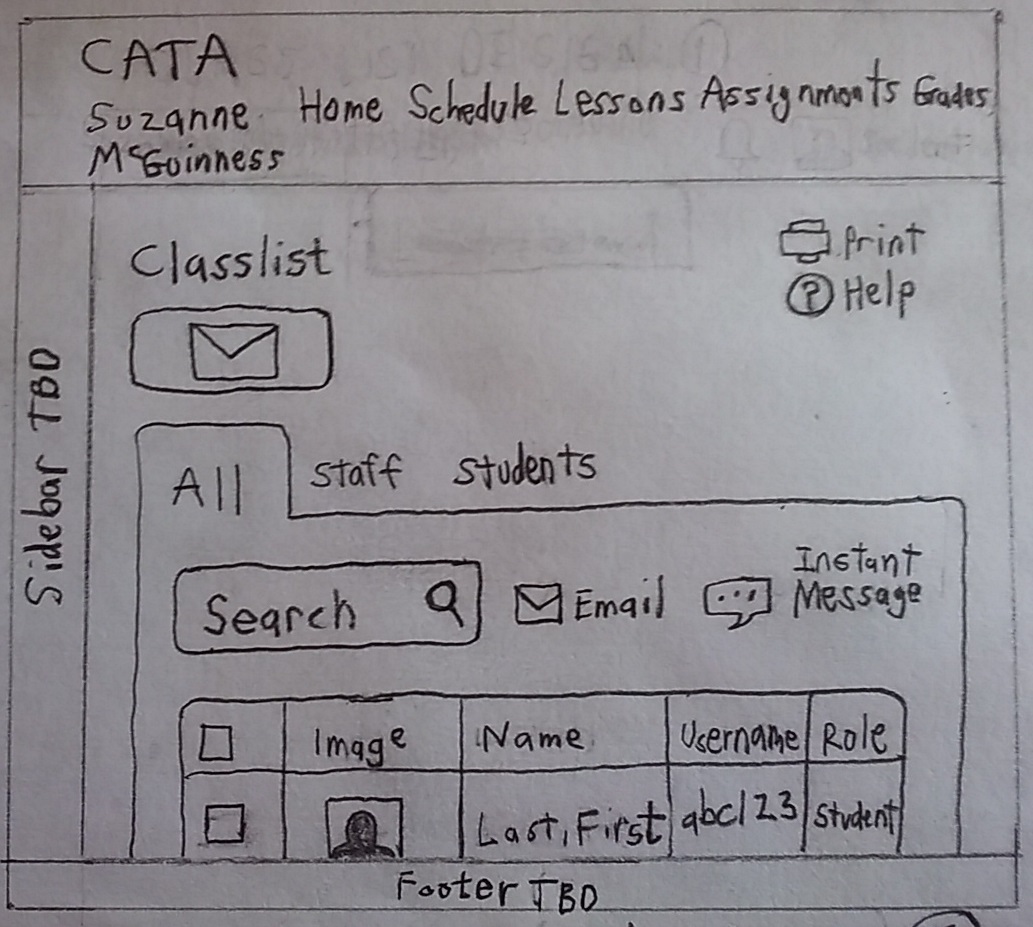 CATA
Suzanne Home Schedule Lessons Assignments Grades
McGuinness
Sidebar TBD
Classlist
Print
? Help
All Staff Students
Search Email Instant
Message
Image Name Username Role
Last, First abc123 Student
Footer TBD